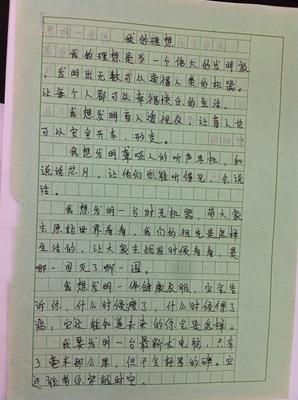 我的理想
我的理想是当一个伟大的发明家,
发明出无数可以造福人类的机器。
让每个人都可以幸福快乐的生活。
我想发明盲人透视仪,让盲人也
可以安全开车,形走。
我想发明聋哑人的听声耳机,和
说话芯片,让他们也能听得见,会说
话。
我想发明一台时光机器,带大家
去原始世界看看,我们的祖先是怎样
生活的,让大家去战国时候看看,是
哪一国灭了哪一国。
我想发明一件健康衣服,它会告
诉你,什么时候瘦了,什么时候得了
病,它还能知道未来的你会是怎样。
我要发明一台最新式电脑,只有
3毫米那么厚,但不会轻易的碎。它
还能带你穿越时空。